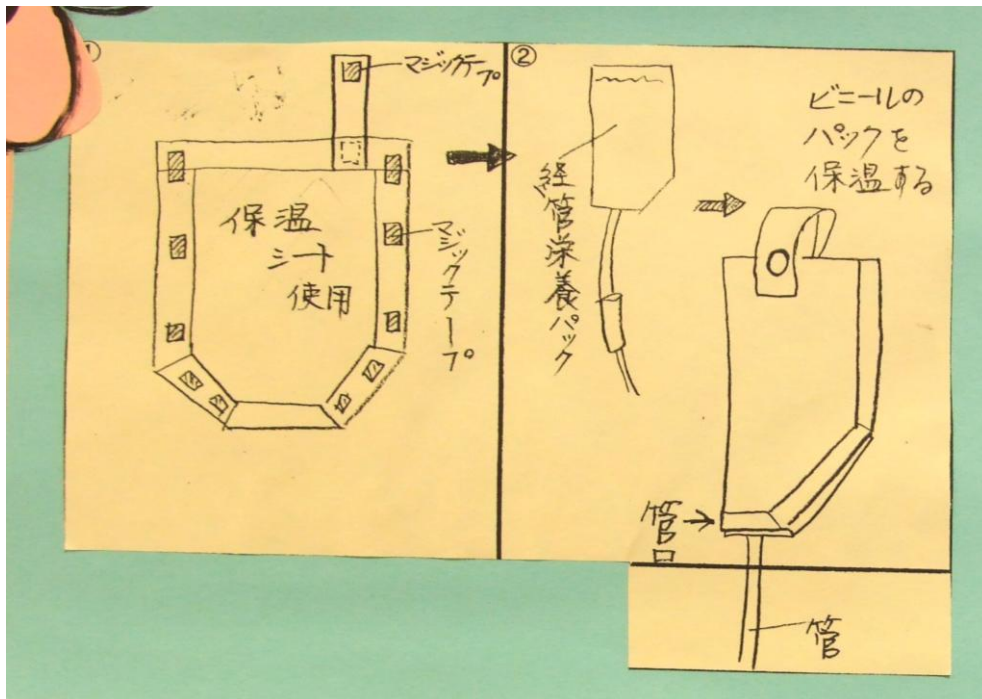 ①
マジックテープ
保温
シート
使用
マジックテープ
②
経管栄養パック
ビニールの
パックを
保温する
管口
管